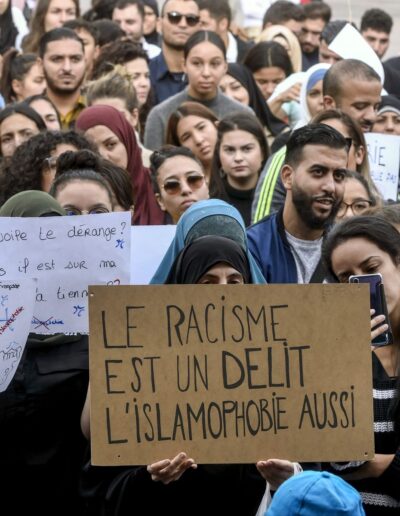 voile te dérange?
il est sur ma
LE RACISME
EST UN DELIT
L'ISLAMOPHOBIE AUSSI